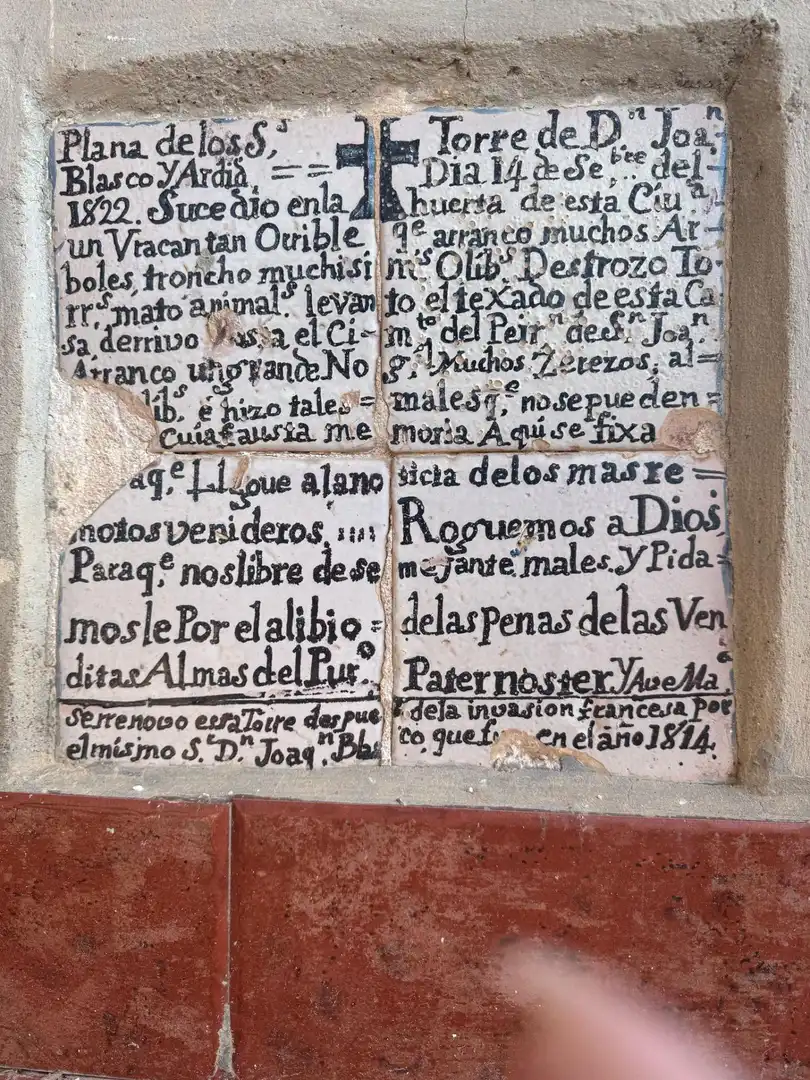 Plana de los S,s ✝ Torre de D.n Joa,n
Blasco Y Ardid, == Dia 14 de Se,bre.. del-
1822. Sucedio en la huerta de esta Ciu,a
un Vracan tan Orrible q.e arranco muchos Ar-
boles, troncho muchisi m.s Olib.s Destrozo To-
rr.s mato animal.s levan to el teXado de esta Ca
sa, derrivo asta el Ci- m.to del Peir.n de S.n Joa,n
Arranco un grande No g,l Muchos Zerezos, al=
lib.s e hizo tales= males q,e no se pueden=
cuia fausta me moria Aqui se fixa
aq,e Llegue a la no ticia de los mas re=
motos venideros, Roguemos a Dios,
Para q,e nos libre de se mejante males. y Pida-
mosle Por el alibio= de las penas de las Ven
ditas Almas del Pur,o Pater noster y Ave Ma,a
se rrenovo essa Torre despue s de la invasion francesa por
el mismo S,r D.n Joaq,n Blas co, que en el año 1814.